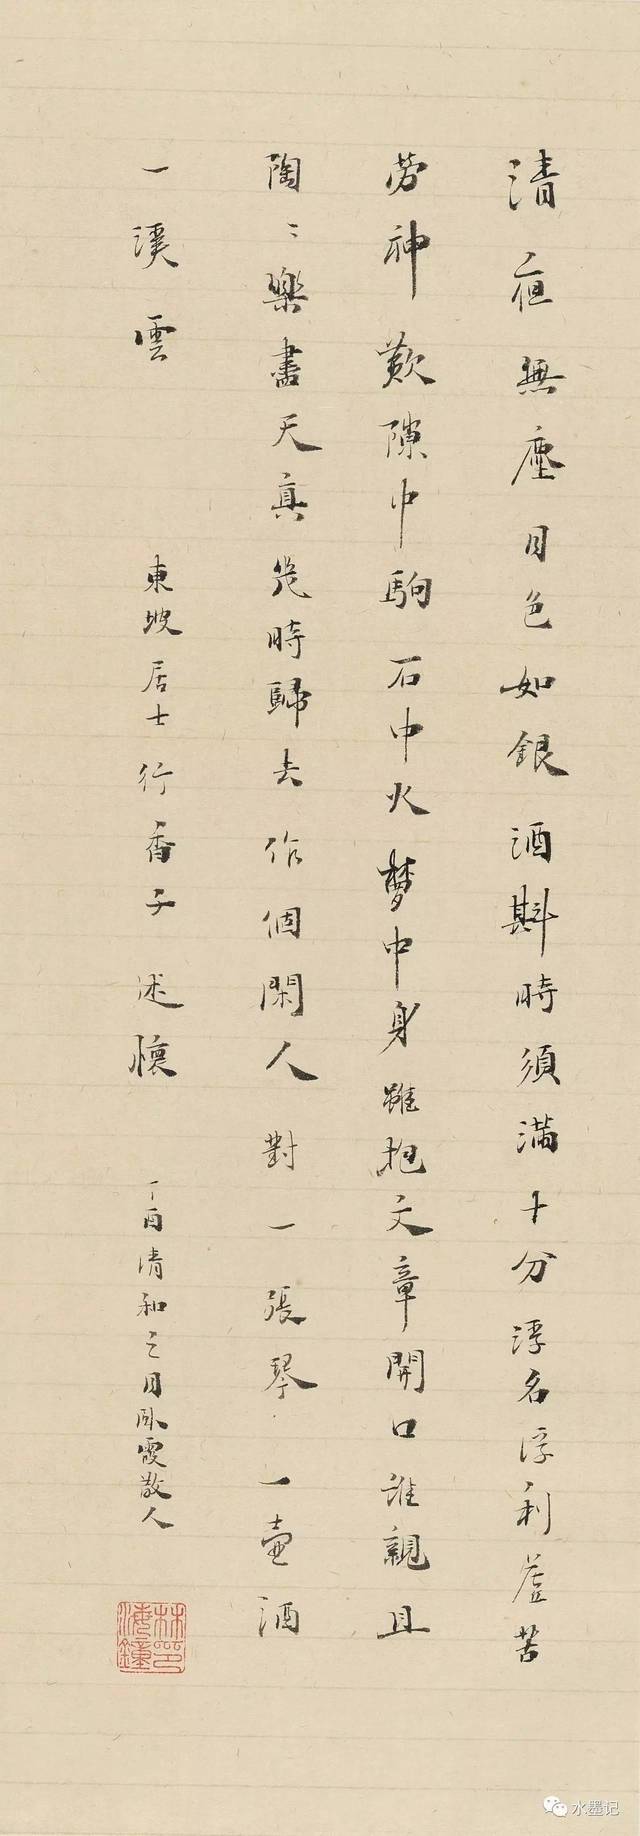 清夜無塵月色如銀酒斟時須滿十分浮名浮利虛苦
勞神歎隙中駒石中火夢中身雖抱文章開口誰親且
陶〻樂盡天真幾時歸去作個閑人對一張琴一壺酒
一溪雲 東坡居士行香子述懷 丁酉清和之月臥霞散人
林印海鐘
水墨记